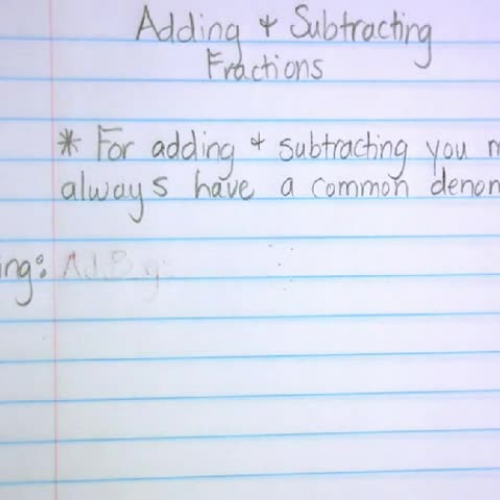 Adding + Subtracting
Fractions
* For adding + subtracting you
always have a common denom
ing: